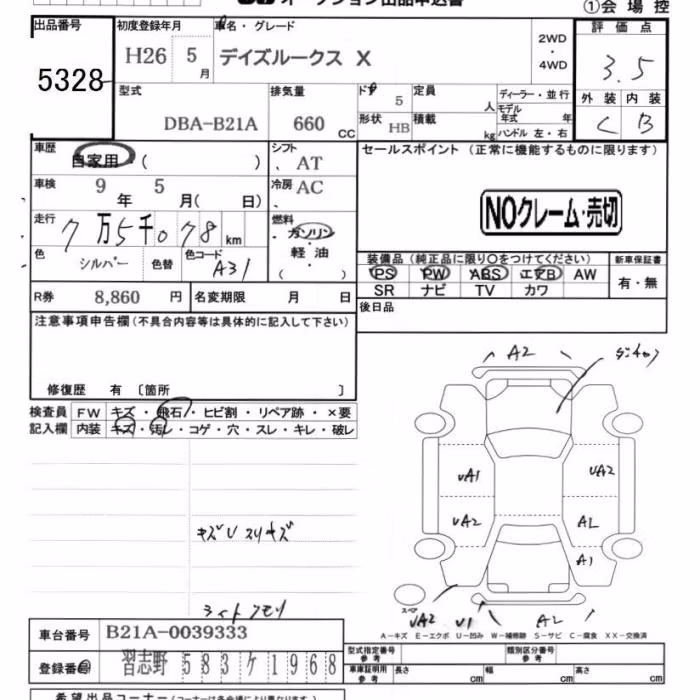 オークション出品申込書
①会場控
出品番号
5328
初度登録年月
H26 5月
車名・グレード
デイズルークス X
2WD
・
4WD
評価点
3.5
型式
DBA-B21A
排気量
660 CC
ドア 5
形状 HB
定員 人
積載 kg
ディーラー・並行
モデル年式 年
ハンドル 左・右
外装 内装
C B
車歴
自家用・( )
シフト
、 AT
セールスポイント (正常に機能するものに限ります)
NOクレーム・売切
車検
9年 5月( 日)
冷房 AC
、
走行
7万5千078km
燃料
・ガソリン
・軽油
・( )
色
シルバー
色替
色コード
A31
装備品 (純正品に限り○をつけてください)
PS PW ABS エアB AW
SR ナビ TV カワ
新車保証書
有・無
R券 8,860 円
名変期限 月 日
後日品
注意事項申告欄(不具合内容等は具体的に記入して下さい)
修復歴 有 〔箇所 〕
検査員記入欄
FW キズ・飛石・ヒビ割・リペア跡・×要
内装 キズ・汚レ・コゲ・穴・スレ・キレ・破レ
A2
UA1
UA2
UA2
AL
A1
キズUスリキズ
ライトクモリ
スペア
UA2 U1 AL
A-キズ E-エクボ U-凹み W-補修跡 S-サビ C-腐食 XX-交換済
車台番号 B21A-0039333
登録番号 習志野 583 ケ 1968
型式指定番号
参考
類別区分番号
参考
車庫証明用
参考
長さ cm
幅 cm
高さ cm
希望出品コーナー